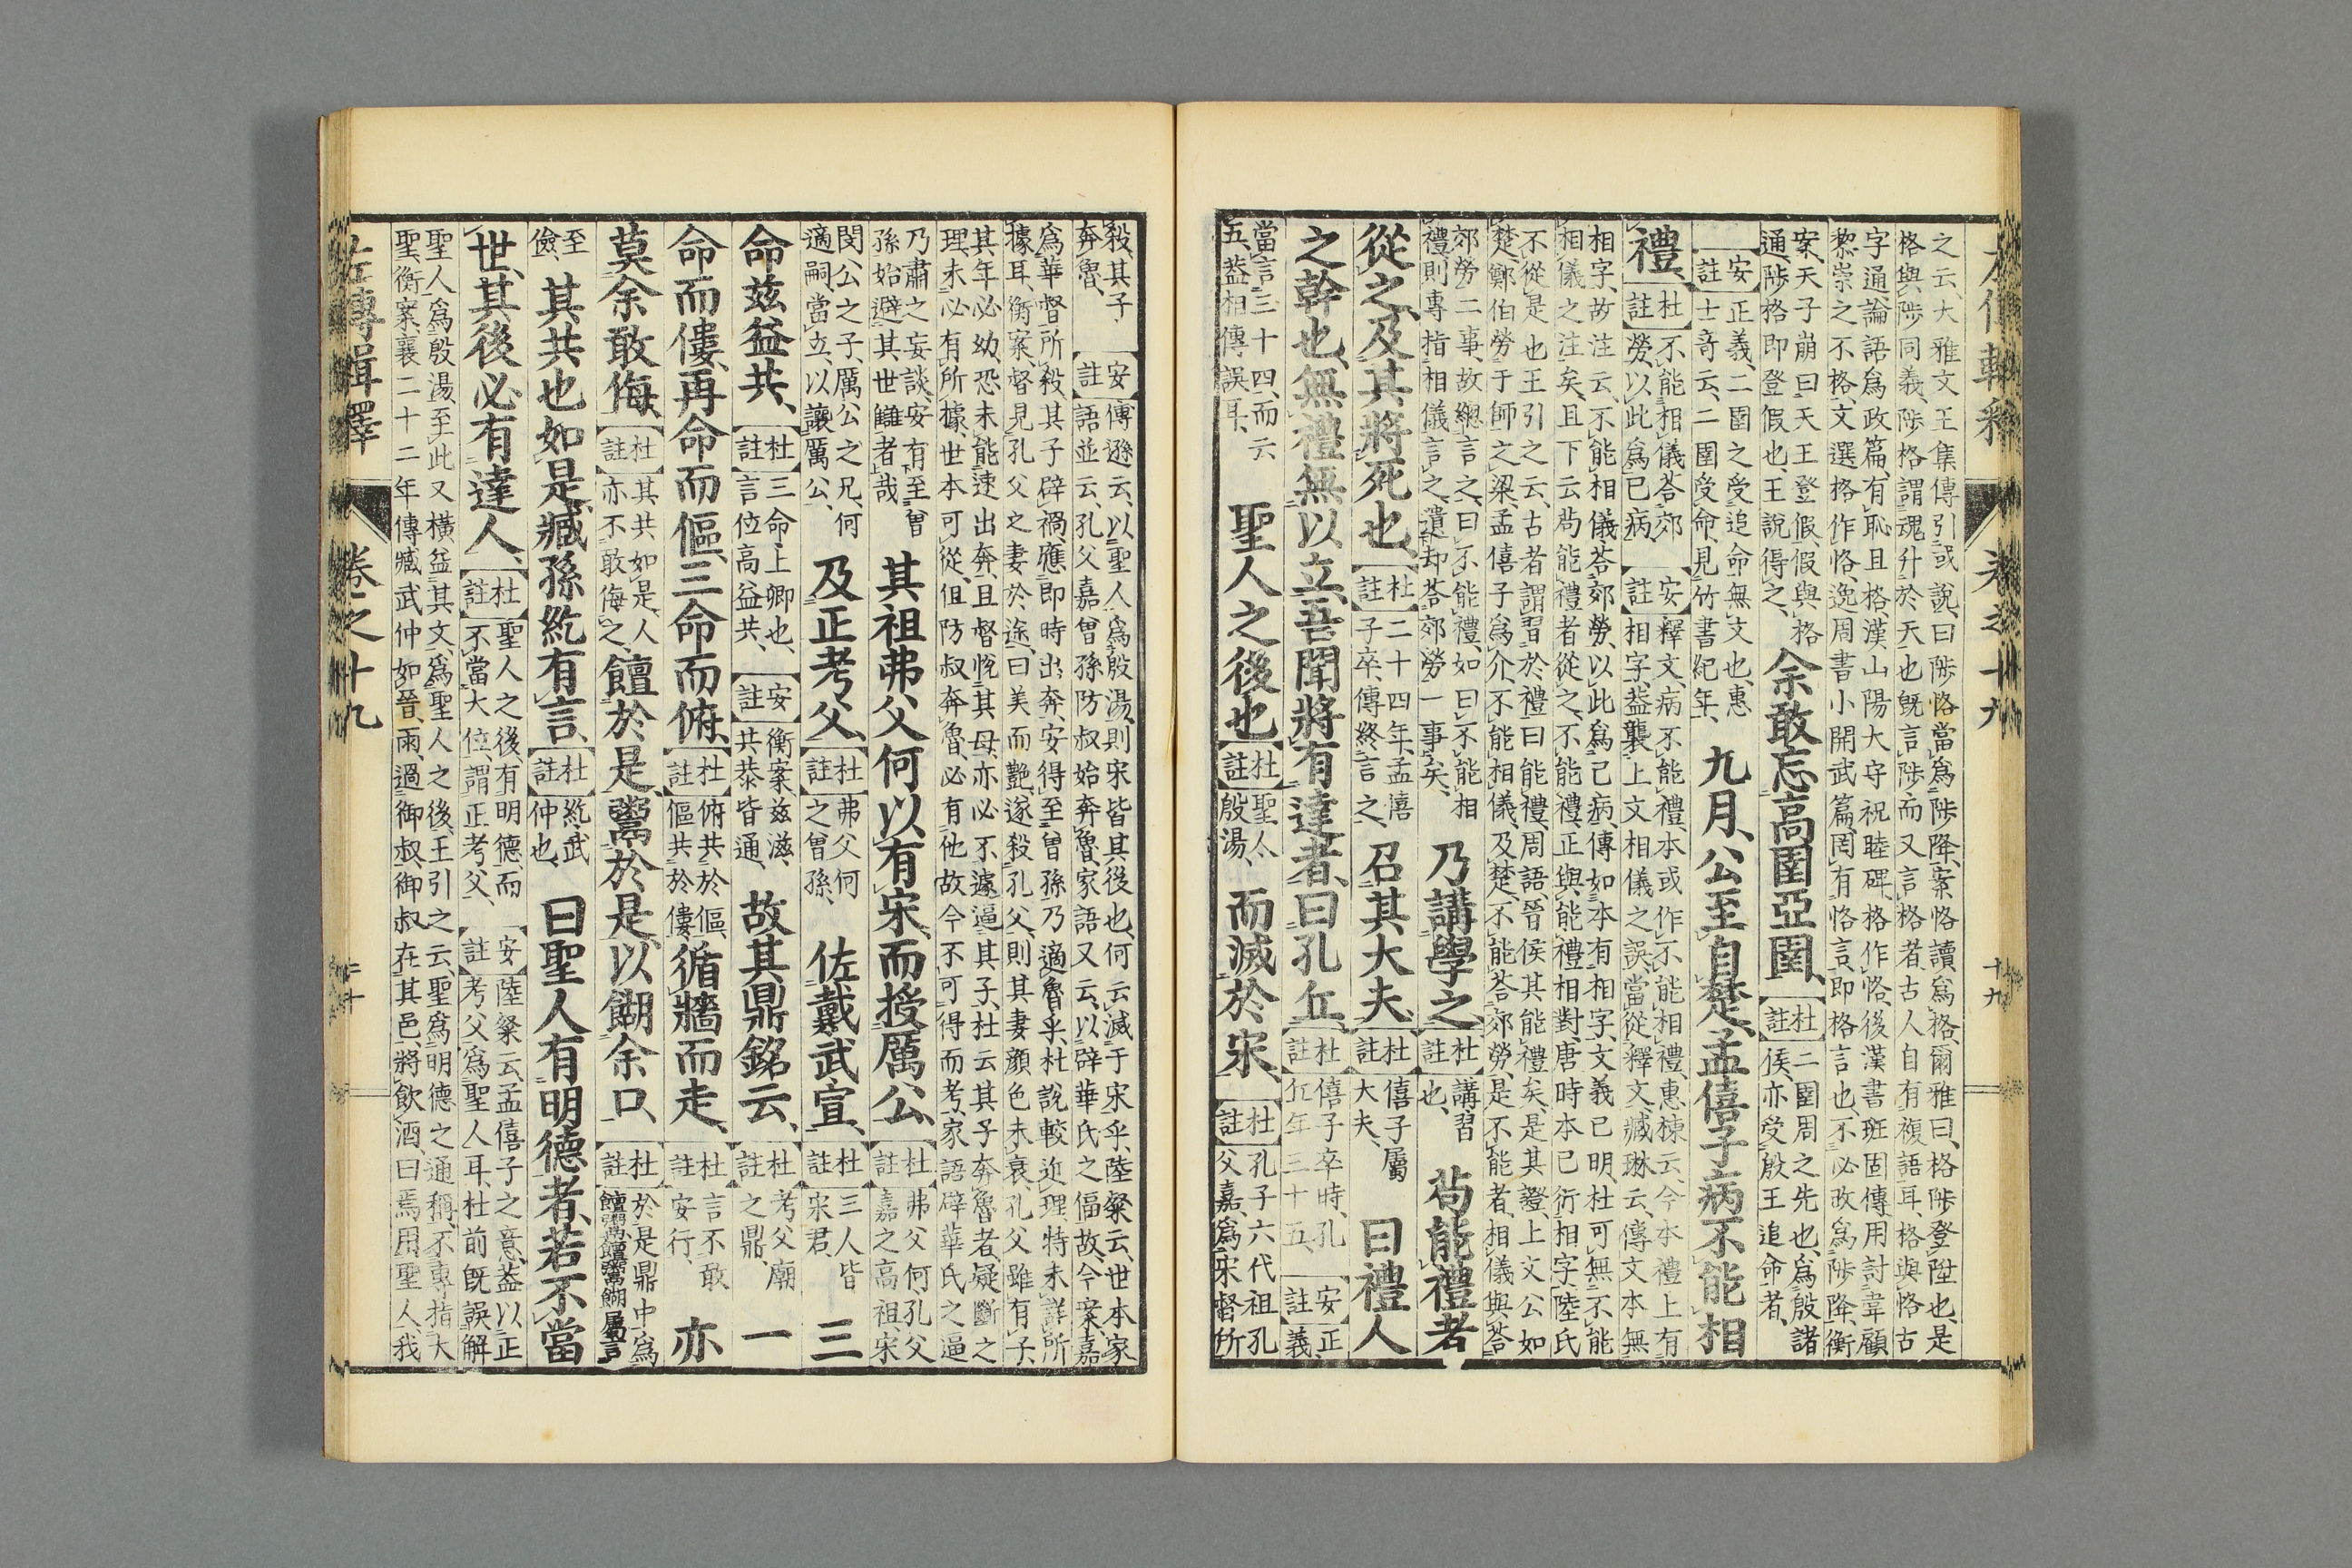 左傳輯釋 卷之十九 十九
之云、大雅文王集傳引或說、曰陟恪當爲陟降、案恪讀爲格、爾雅曰、格陟登陞也、是
格與陟同義、陟格謂魂升於天也、旣言陟而又言格者、古人自有複語耳、格與恪古
字通、論語爲政篇、有恥且格、漢山陽大守祝睦碑、格作恪、後漢書班固傳用討韋顧
黎崇之不格、文選格作恪、逸周書小開武篇、罔有恪言、即格言也、不必改爲陟降、衡
案、天子崩曰天王登假、假與格通、陟格即登假也、王說得之、余敢忘高圉亞圉、杜註二圉周之先也、爲殷諸侯、亦受殷王追命者、
安註正義、二圉之受追命無文也、惠士奇云、二圉受命、見竹書紀年、九月、公至自楚、孟僖子病不能相
禮、杜註不能相儀荅郊勞、以此爲已病安註釋文、病不能禮、本或作不能相禮、惠棟云、今本禮上有相字、盖襲上文相儀之誤、當從釋文、臧琳云、傳文本無
相字、故注云、不能相儀荅郊勞、以此爲己病、傳如本有相字、文義已明、杜可無不能
相儀之注矣、且下云苟能禮者從之、不能禮、正與能禮相對、唐時本已衍相字、陸氏
不從是也、王引之云、古者謂習於禮曰能禮、周語、晉侯其能禮矣、是其證、上文公如
楚、鄭伯勞于師之梁、孟僖子爲介、不能相儀、及楚、不能荅郊勞、是不能者、相儀與荅
郊勞二事、故總言之、曰不能禮、如曰不能相禮、則專指相儀言之、遺却荅郊勞一事矣、乃講學之、杜註講習也、苟能禮者
從之、及其將死也、杜註二十四年、孟僖子卒、傳終言之、召其大夫、杜註僖子屬大夫、曰禮人
之幹也、無禮無以立、吾聞將有達者、曰孔丘、杜註僖子卒時、孔丘年三十五、安註正義
當言三十四、而云五、盖相傳誤耳、聖人之後也、杜註聖人、殷湯、而滅於宋、杜註孔子六代祖孔父嘉、爲宋督所
殺、其子奔魯、安註傳遜云、以聖人爲殷湯、則宋皆其後也、何云滅于宋乎、陸粲云、世本家語並云、孔父嘉曾孫防叔始奔魯、家語又云、以辟華氏之偪故、今案、嘉
爲華督所殺、其子辟禍、應即時出奔、安得至曾孫乃適魯乎、杜說較近理、特未詳所
據耳、衡案、督見孔父之妻於途、曰美而艷、遂殺孔父、則其妻顏色未衰、孔父雖有子、
其年必幼、恐未能速出奔、且督悅其母、亦必不遽逼其子、杜云其子奔魯者、疑斷之
理、未必有所據、世本可從、但防叔奔魯必有他故、今不可得而考、家語辟華氏之逼
乃肅之妄談、安有至曾孫始避其世讎者哉 其祖弗父何以有宋而授厲公、杜註弗父何、孔父嘉之高祖、宋
閔公之子、厲公之兄、何適嗣、當立、以讓厲公、及正考父、杜註弗父何之曾孫、佐戴武宣、杜註三人皆宋君、三
命茲益共、杜註三命上卿也、言位高益共、安註衡案、茲滋、共恭皆通、故其鼎銘云、杜註考父廟之鼎、一
命而僂、再命而傴、三命而俯、杜註俯共於傴、傴共於僂、循牆而走、杜註言不敢安行、亦
莫余敢侮、杜註其共如是、人亦不敢侮之、饘於是、鬻於是、以餬余口、杜註於是鼎中爲饘鬻、饘鬻餬屬、言
至儉、其共也如是、臧孫紇有言、杜註紇、武仲也、曰聖人有明德者、若不當
世、其後必有達人、杜註聖人之後、有明德、而不當大位、謂正考父、安註陸粲云、孟僖子之意、盖以正考父爲聖人耳、杜前旣誤解
聖人爲殷湯、至此又橫益其文、爲聖人之後、王引之云、聖爲明德之通稱、不專指大
聖、衡案、襄二十二年傳、臧武仲如晉、雨、過御叔、御叔在其邑、將飮酒、曰焉用聖人、我
左傳輯釋 卷之十九 二十